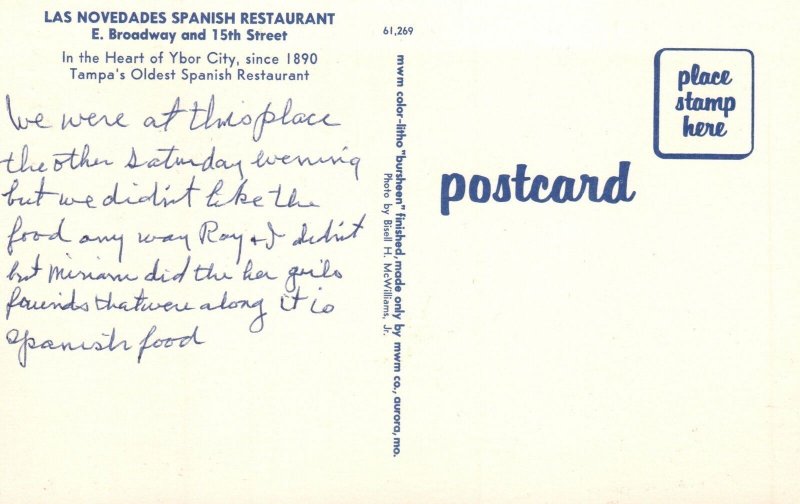 LAS NOVEDADES SPANISH RESTAURANT
E. Broadway and 15th Street
In the Heart of Ybor City, since 1890
Tampa's Oldest Spanish Restaurant
We were at this place
the other Saturday evening
but we didn't like the
food any way Roy & I didn't
but Miriam did the her girls
friends that were along it is
Spanish food
61,269
mwm color-litho "bursheen" finished, made only by mwm co., aurora, mo.
Photo by Bisell H. McWilliams, Jr.
postcard
place
stamp
here